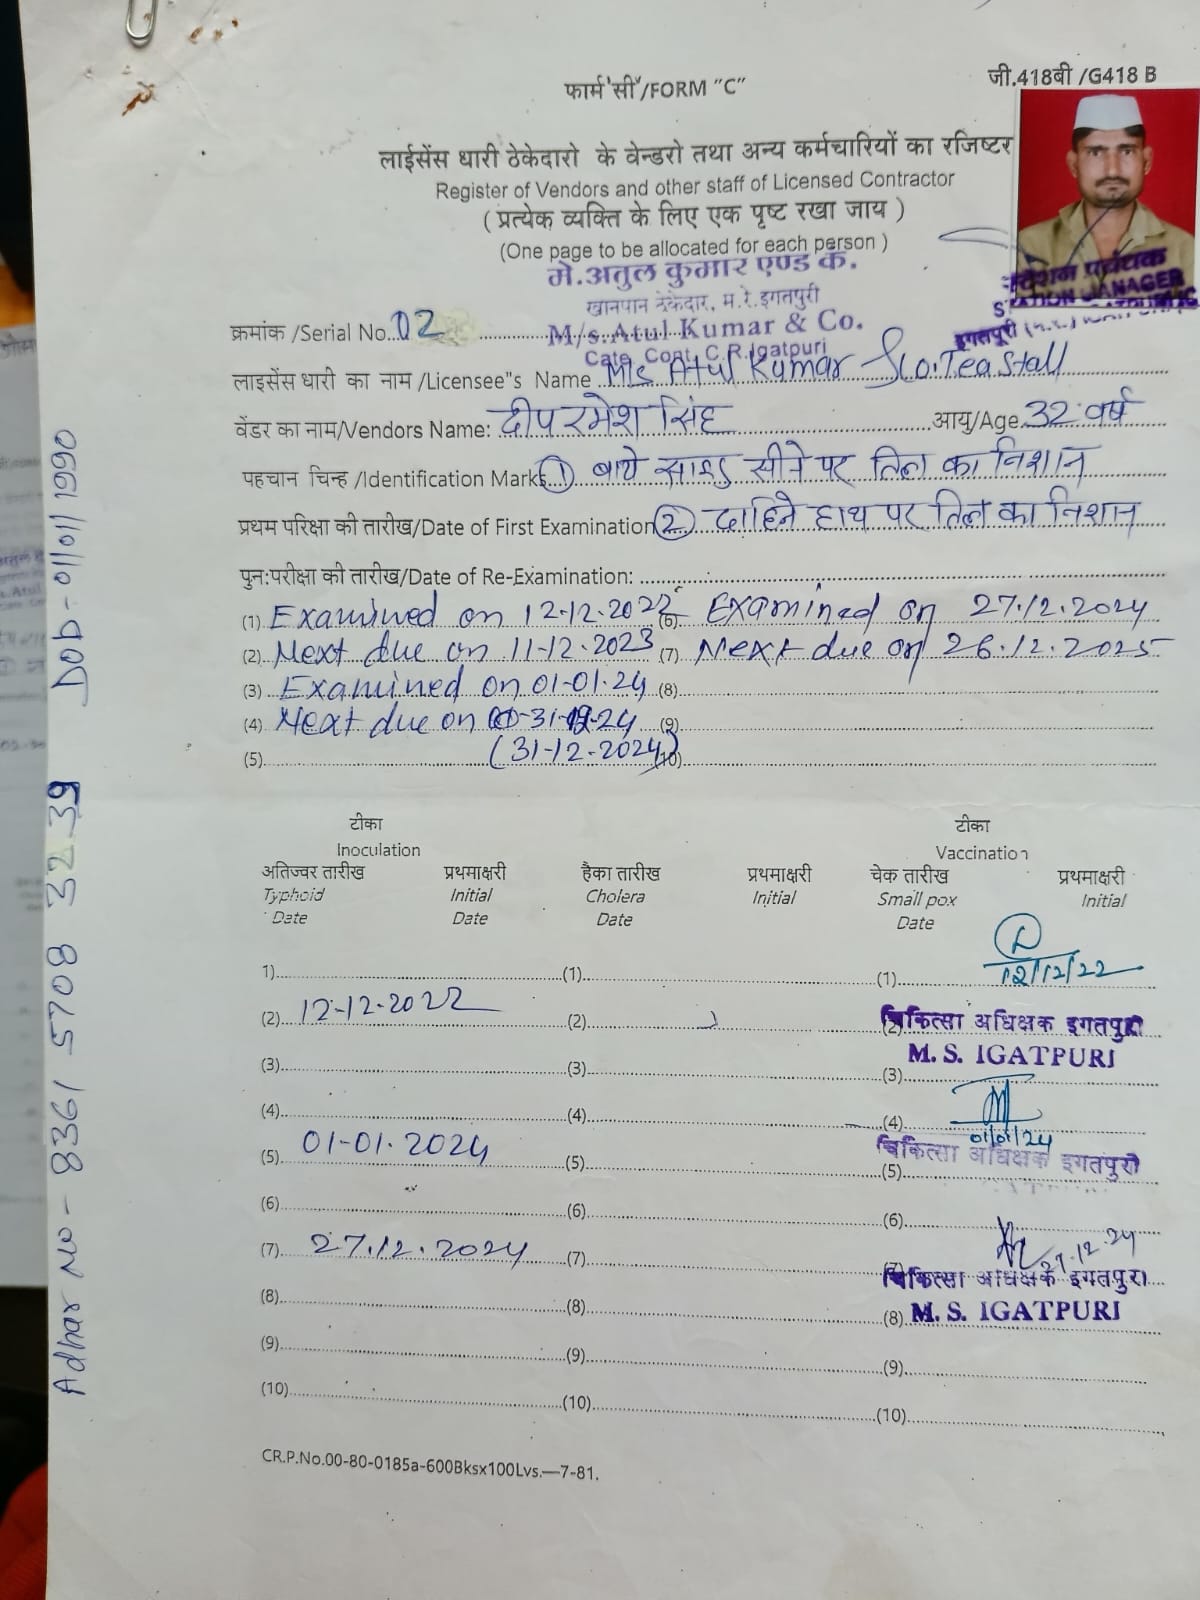 जी.418बी /G418 B
फार्म 'सी'/FORM "C"
लाईसेंस धारी ठेकेदारो के वेन्डरो तथा अन्य कर्मचारियों का रजिष्टर
Register of Vendors and other staff of Licensed Contractor
( प्रत्येक व्यक्ति के लिए एक पृष्ट रखा जाय )
(One page to be allocated for each person )
मे.अतुल कुमार एण्ड कं.
खानपान ठेकेदार, म.रे.इगतपुरी
STATION MANAGER
क्रमांक /Serial No. 02
M/s. Atul Kumar & Co.
Cate. Cont. C.R. Igatpuri
इगतपुरी
लाइसेंस धारी का नाम /Licensee"s Name M/s Atul Kumar & Co. Tea Stall
वेंडर का नाम/Vendors Name: दीप रमेश सिंह आयु/Age 32 वर्ष
पहचान चिन्ह /Identification Marks (1) बाये साइड सीने पर तिल का निशान
प्रथम परिक्षा की तारीख/Date of First Examination (2) दाहिने हाथ पर तिल का निशान
पुन:परीक्षा की तारीख/Date of Re-Examination:
(1) Examined on 12-12-2022 (6) Examined on 27.12.2024
(2) Next due on 11-12-2023 (7) Next due on 26.12.2025
(3) Examined on 01-01-24 (8)
(4) Next due on 31-12-24 (9)
(5) (31-12-2024) (10)
टीका टीका
Inoculation Vaccination
अतिज्वर तारीख प्रथमाक्षरी हैका तारीख प्रथमाक्षरी चेक तारीख प्रथमाक्षरी
Typhoid Initial Cholera Initial Small pox Initial
Date Date Date Date
1) (1) (1) 12/12/22
(2) 12-12-2022 (2) चिकित्सा अधिक्षक इगतपुरी
M. S. IGATPURI
(3) (3) (3)
(4) (4) (4) 01/01/24
(5) 01-01-2024 (5) (5) चिकित्सा अधिक्षक इगतपुरी
(6) (6) (6)
(7) 27.12.2024 (7) 27.12.24
चिकित्सा अधिक्षक इगतपुरी
(8) (8) (8) M. S. IGATPURI
(9) (9) (9)
(10) (10) (10)
CR.P.No.00-80-0185a-600Bksx100Lvs.—7-81.
Adhar No - 8361 5708 3239 DOB - 01/01/1990